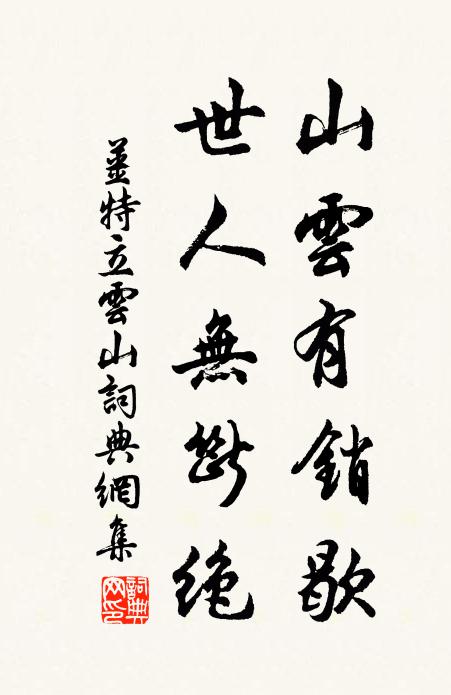 山雲有銷歇
世人無斷絶
薑特立雲山詞典網集
詞典網印